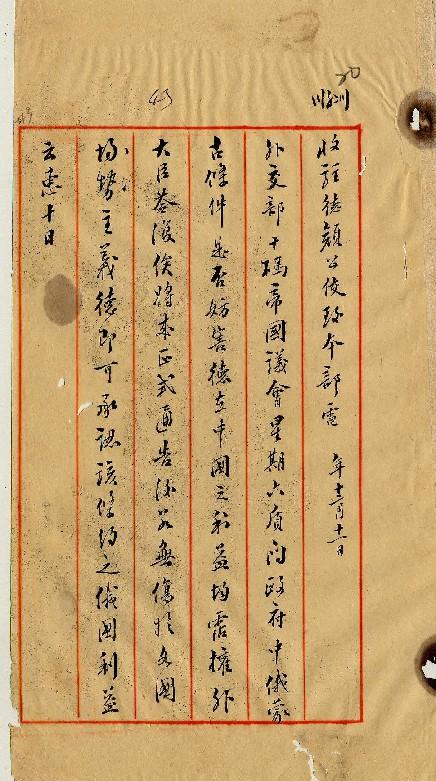 收駐德顏公使致本部電 年十二月十一日
外交部十獁帝國議會星期六質問政府中俄蒙
古條件是否妨害德在中國之利益均霑權外
大臣荅復俟將來正式通告後若無傷於各國
均勢主義德即可承認該條約之俄國利益
云惠十日